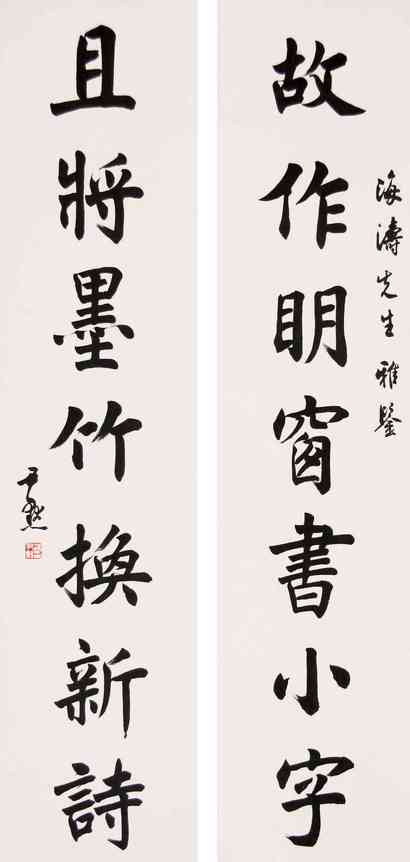 海濤先生雅鑒
故作明窗書小字
且將墨竹換新詩
尹默